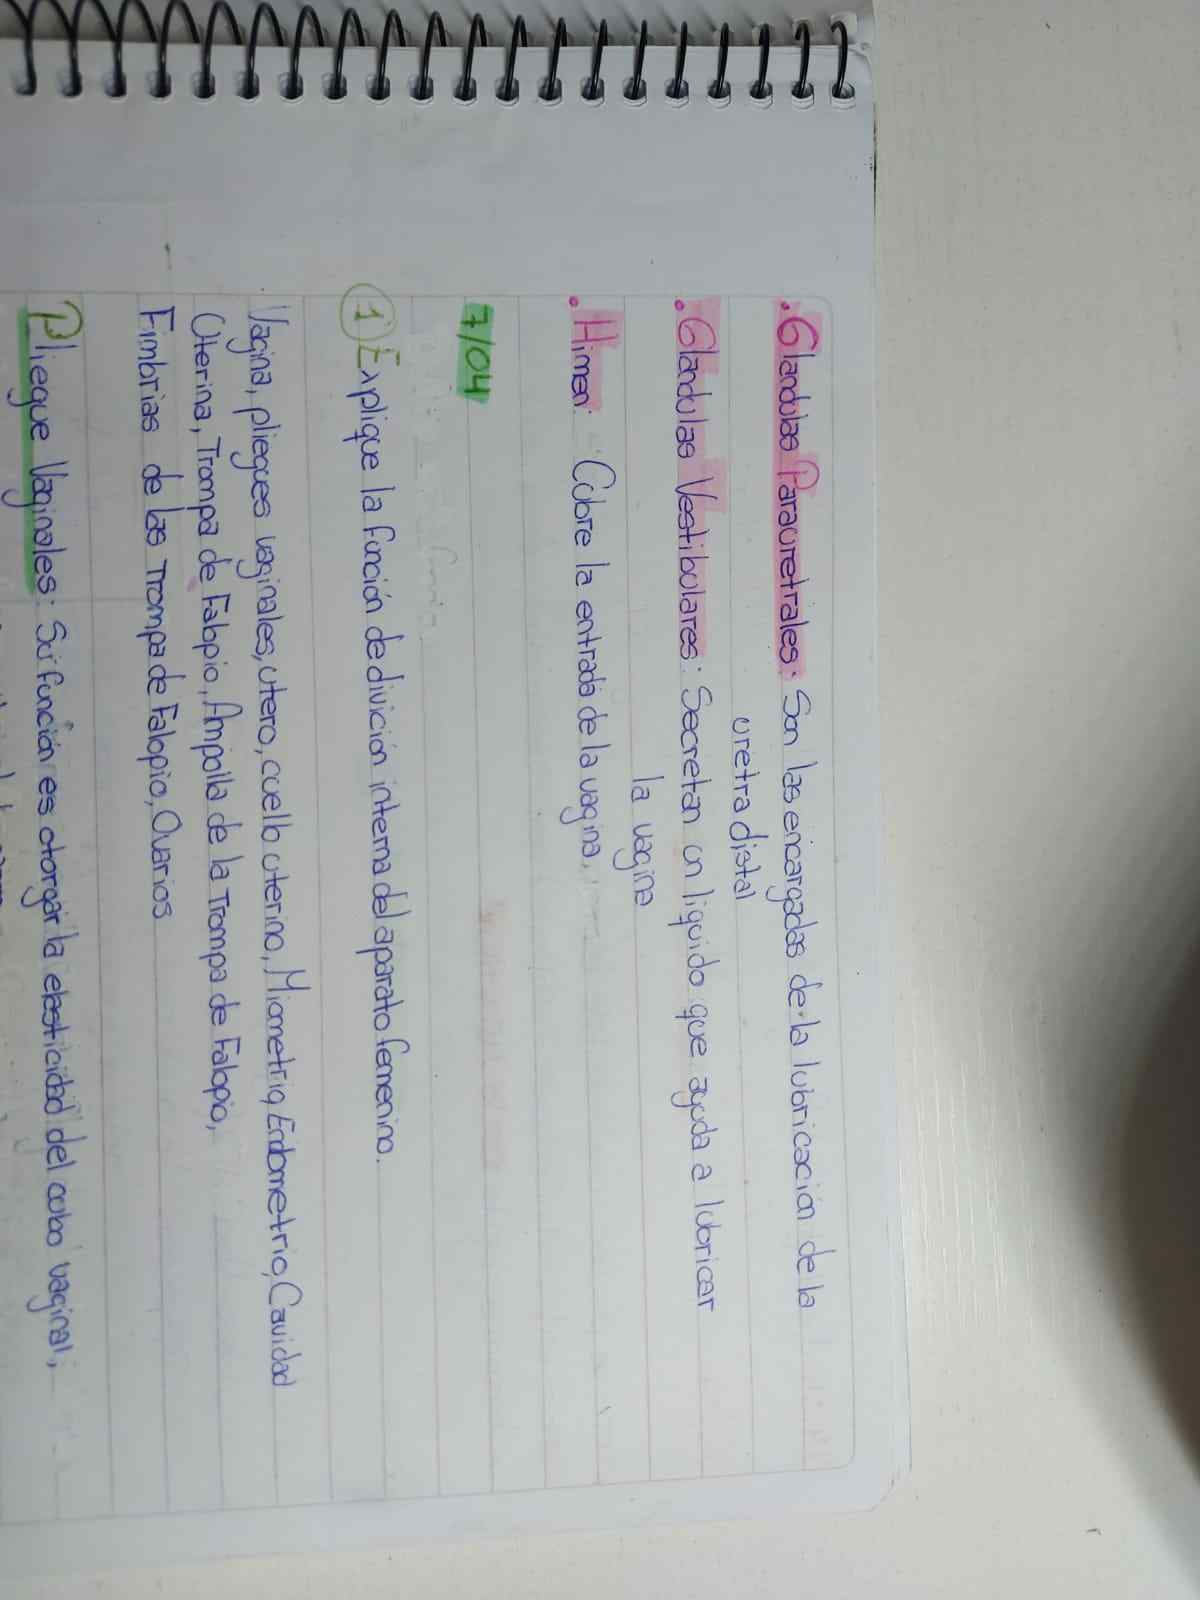 . Glandulas Parauretrales: Son las encargadas de la lubricación de la
uretra distal
. Glandulas Vestibulares: Secretan un liquido que ayuda a lubricar
la vagina
. Himen: Cubre la entrada de la vagina,
7/04
1 Explique la función de divición interna del aparato femenino.
Vagina, pliegues vaginales, utero, cuello uterino, Miometrio, Endometrio, Cavidad
Uterina, Trompa de Falopio, Ampolla de la Trompa de Falopio,
Fimbrias de las Trompa de Falopio, Ovarios
Pliegue Vaginales: Su función es otorgar la elasticidad del cubo vaginal,